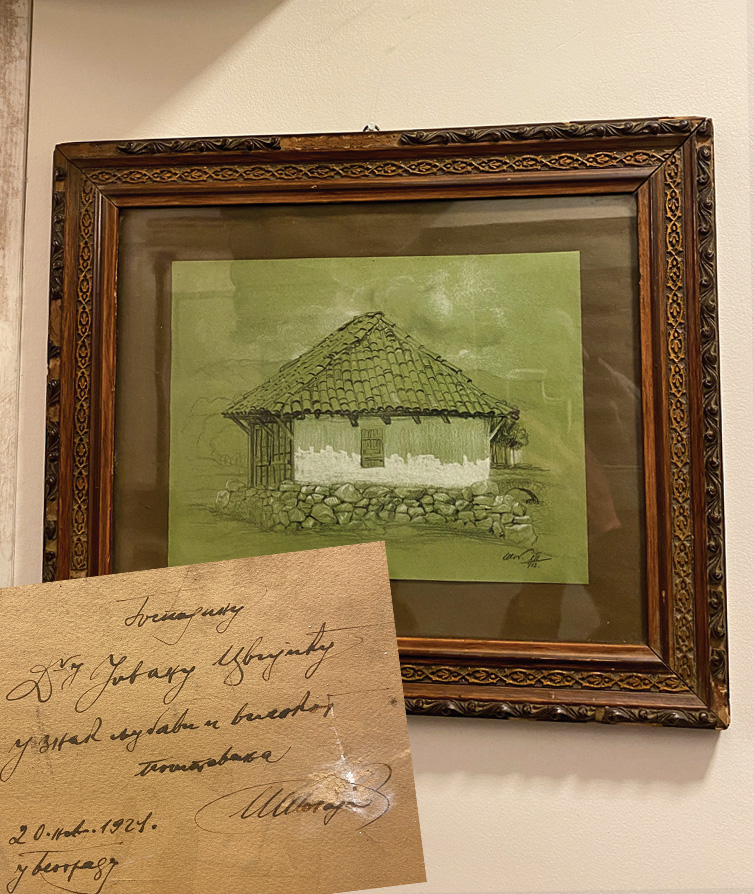 Господину
Дру Јовану Цвијићу
у знак љубави и високог
поштовања
20. нов. 1921.
у Београду